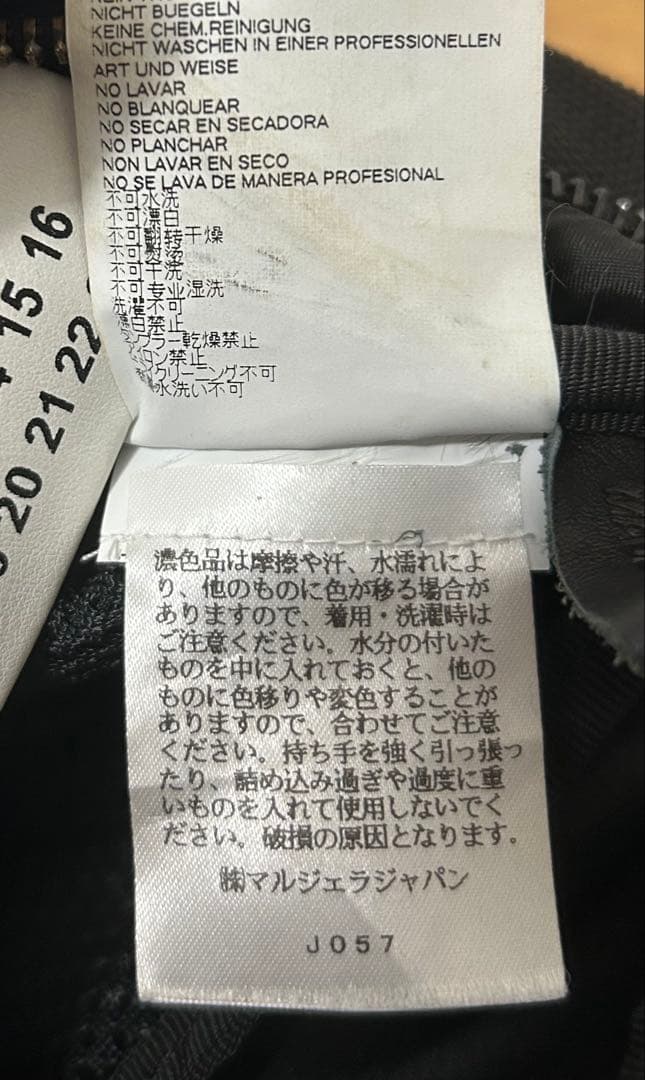 NICHT BUEGELN
KEINE CHEM.REINIGUNG
NICHT WASCHEN IN EINER PROFESSIONELLEN
ART UND WEISE
NO LAVAR
NO BLANQUEAR
NO SECAR EN SECADORA
NO PLANCHAR
NON LAVAR EN SECO
NO SE LAVA DE MANERA PROFESIONAL
不可水洗
不可漂白
不可翻转干燥
不可熨烫
不可干洗
不可专业湿洗
洗濯不可
漂白禁止
ラー乾燥禁止
ン禁止
イクリーニング不可
水洗い不可
15 16
20 21 22
濃色品は摩擦や汗、水濡れによ
り、他のものに色が移る場合が
ありますので、着用・洗濯時は
ご注意ください。水分の付いた
ものを中に入れておくと、他の
ものに色移りや変色することが
ありますので、合わせてご注意
ください。持ち手を強く引っ張っ
たり、詰め込み過ぎや過度に重
いものを入れて使用しないでく
ださい。破損の原因となります。
㈱マルジェラジャパン
J057